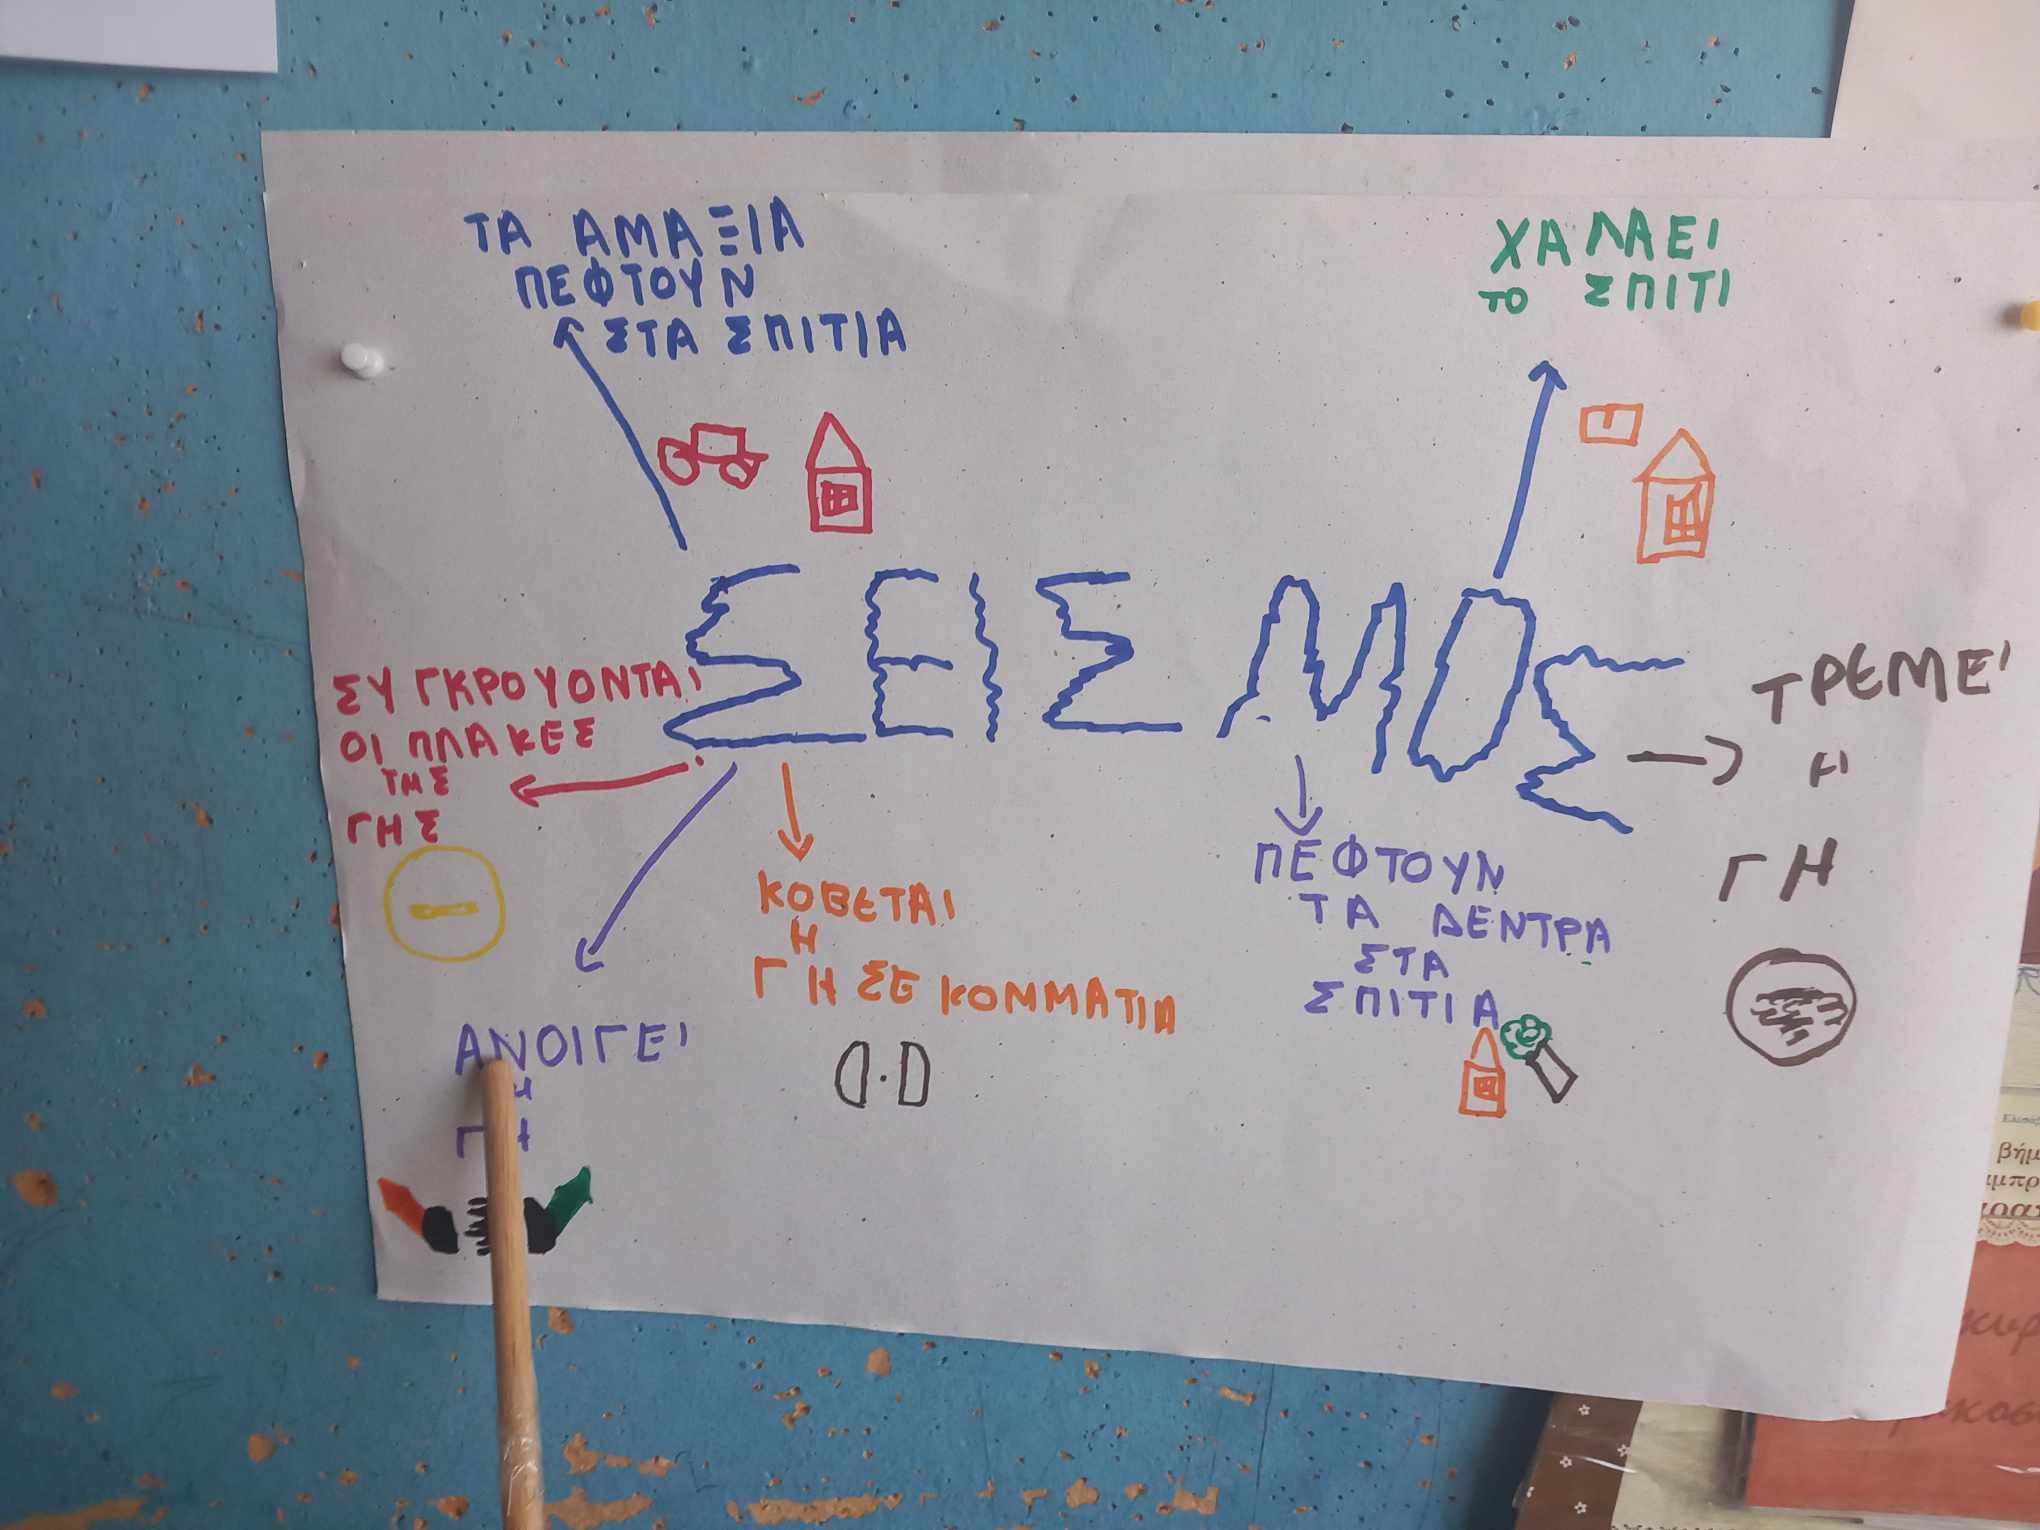 ΤΑ ΑΜΑΞΙΑ
ΠΕΦΤΟΥΝ
ΣΤΑ ΣΠΙΤΙΑ
ΧΑΛΑΕΙ
ΤΟ ΣΠΙΤΙ
ΣΕΙΣΜΟΣ
ΣΥΓΚΡΟΥΟΝΤΑΙ
ΟΙ ΠΛΑΚΕΣ
ΤΗΣ
ΓΗΣ
ΤΡΕΜΕΙ
Η
ΓΗ
ΚΟΒΕΤΑΙ
Η
ΓΗ ΣΕ ΚΟΜΜΑΤΙΑ
ΠΕΦΤΟΥΝ
ΤΑ ΔΕΝΤΡΑ
ΣΤΑ
ΣΠΙΤΙΑ
ΑΝΟΙΓΕΙ
Η
ΓΗ